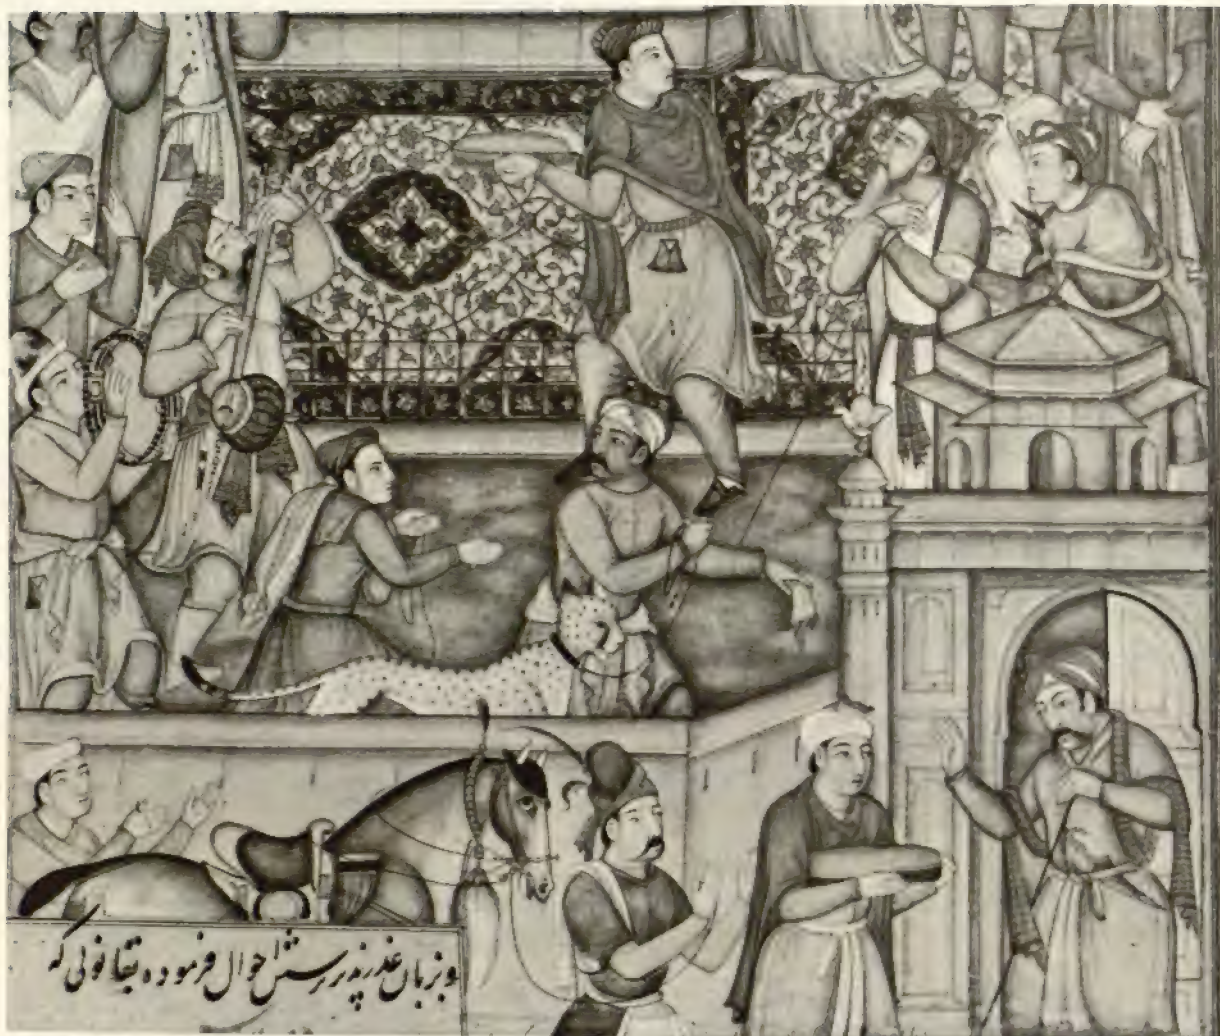 و بزبان عذرپذیر پرسش احوال فرموده بقانونی که